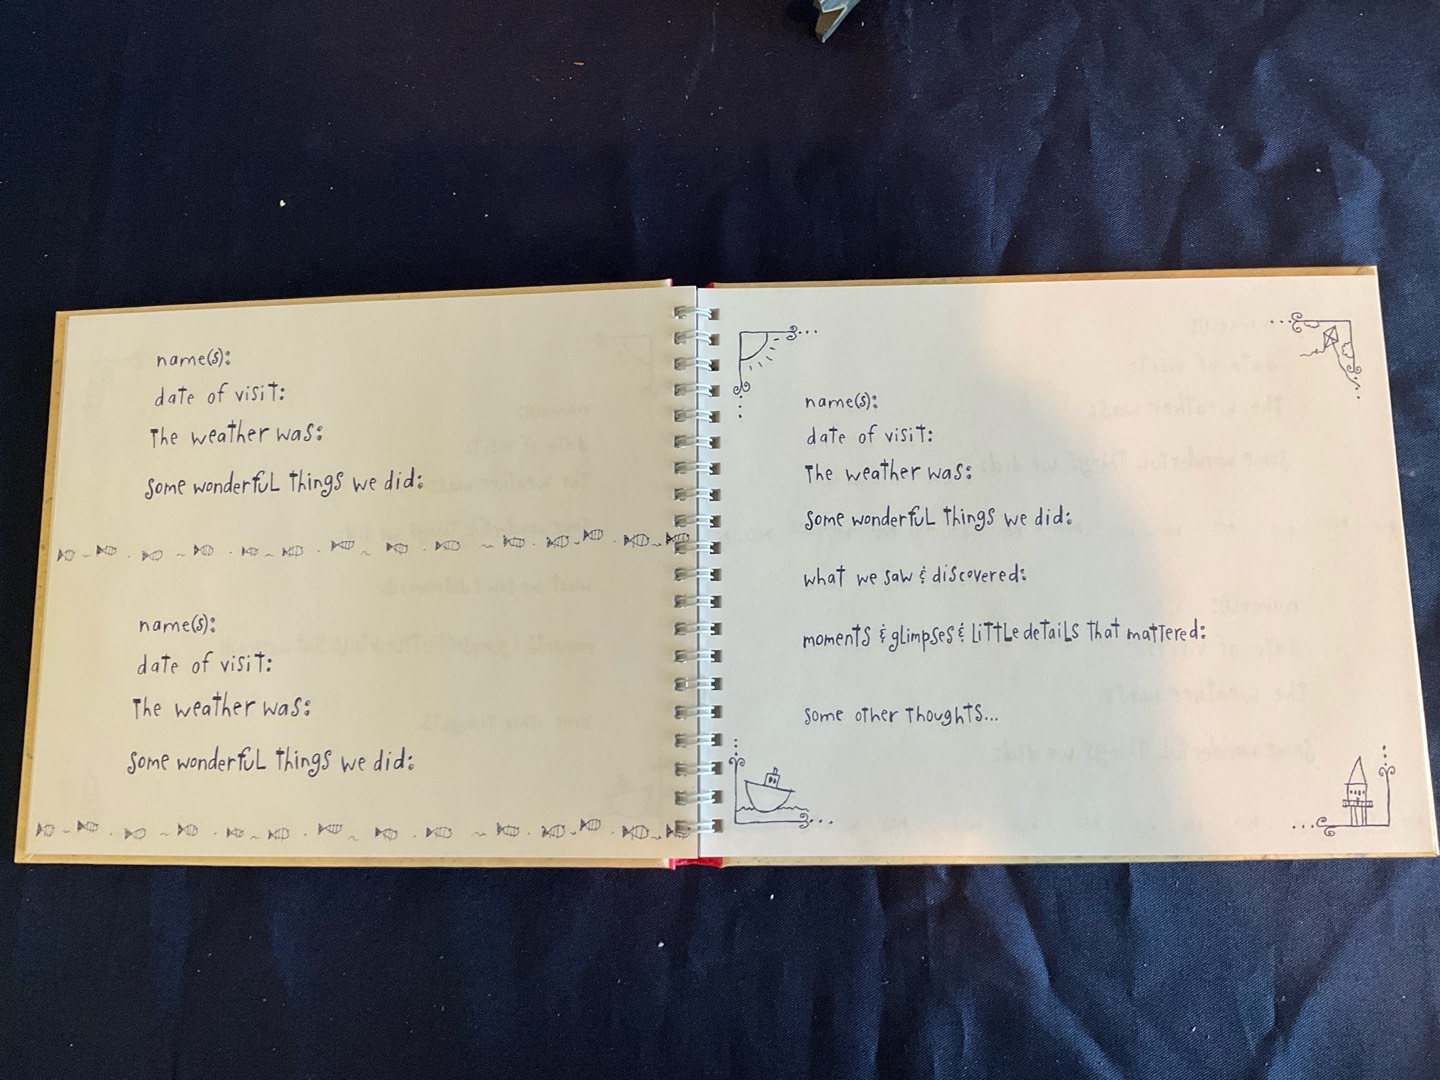 name(s):
date of visit:
The weather was:
Some wonderful Things we did:
name(s):
date of visit:
The weather was:
Some wonderful Things we did:
name(s):
date of visit:
The weather was:
Some wonderful Things we did:
what we saw & discovered:
moments & glimpses & little details That mattered:
Some other Thoughts...